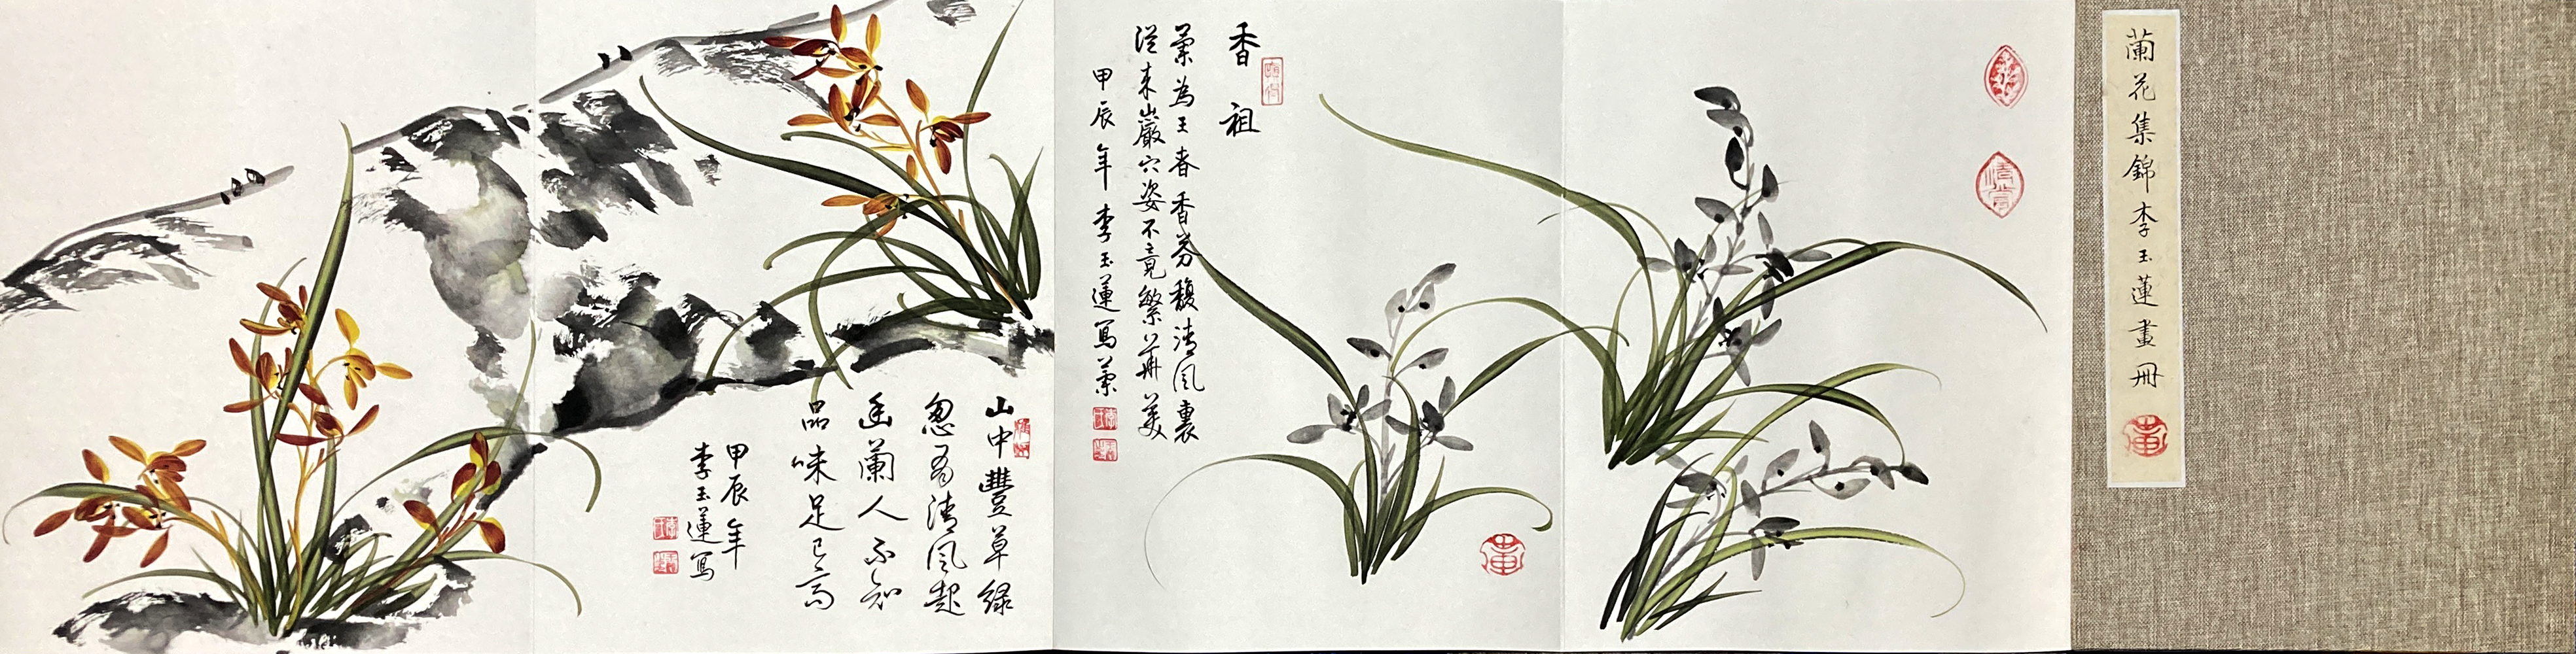 蘭花集錦李玉蓮畫冊
香祖
蘭為王者香芬馥清風裏
從來巖穴姿不竟繁華美
甲辰年李玉蓮寫蘭
山中豐草綠
忽有清風起
幽蘭人不知
品味足已高
甲辰年
李玉蓮寫